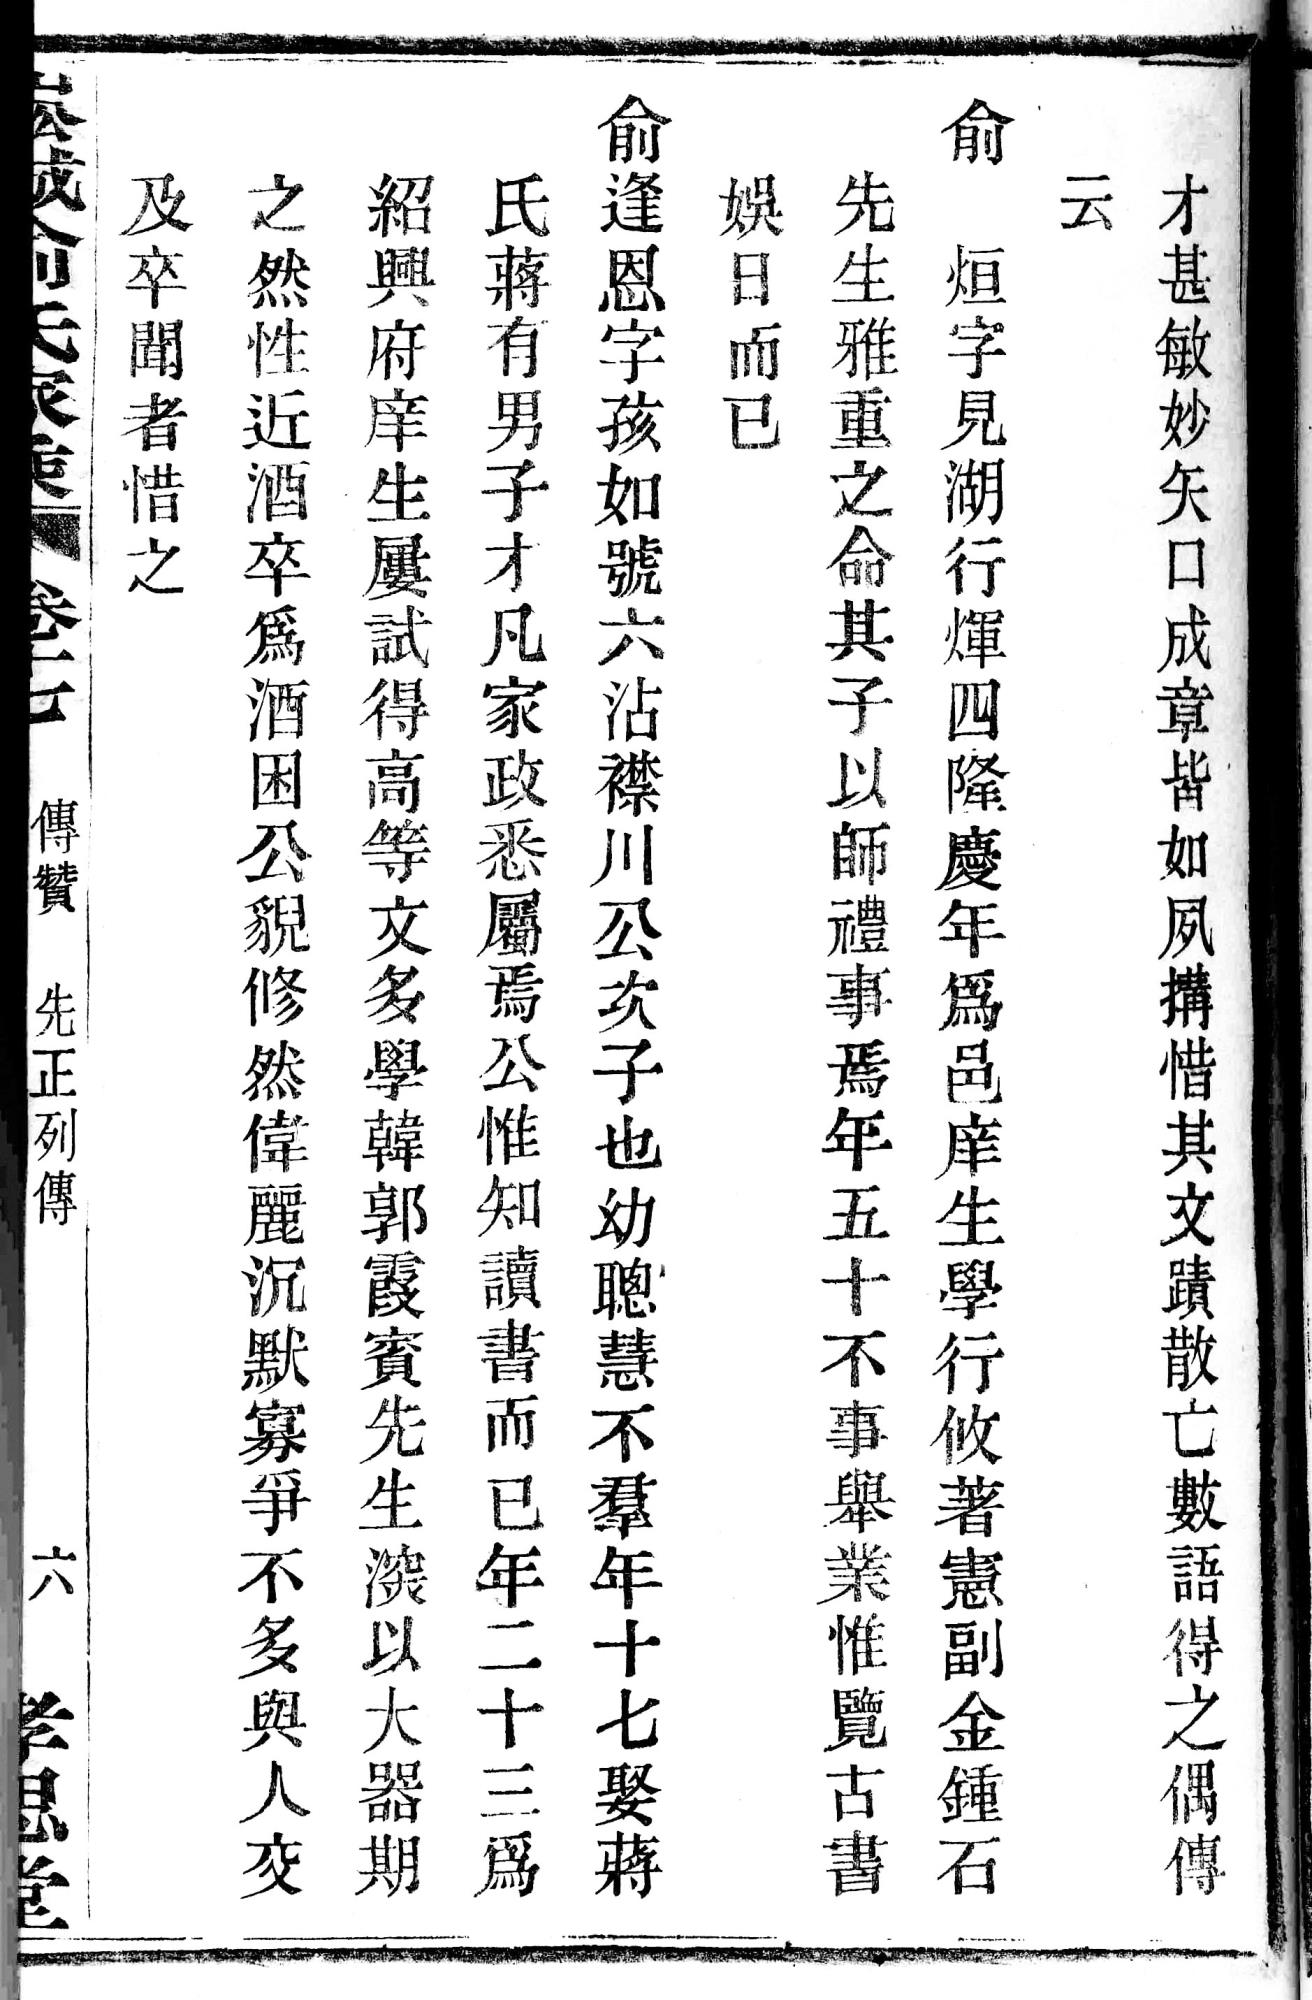 才甚敏妙矢口成章皆如夙搆惜其文蹟散亡數語得之偶傳
云
俞　烜字見湖行煇四隆慶年爲邑庠生學行攸著憲副金鍾石
先生雅重之命其子以師禮事焉年五十不事舉業惟覽古書
娛日而已
俞逢恩字孩如號六沾襟川公次子也幼聰慧不羣年十七娶蔣
氏蔣有男子才凡家政悉屬焉公惟知讀書而已年二十三爲
紹興府庠生屢試得高等文多學韓郭霞賓先生深以大器期
之然性近酒卒爲酒困公貌修然偉麗沉默寡爭不多與人交
及卒聞者惜之
俞氏家乘　卷十七　傳贊　先正列傳　六　孝思堂